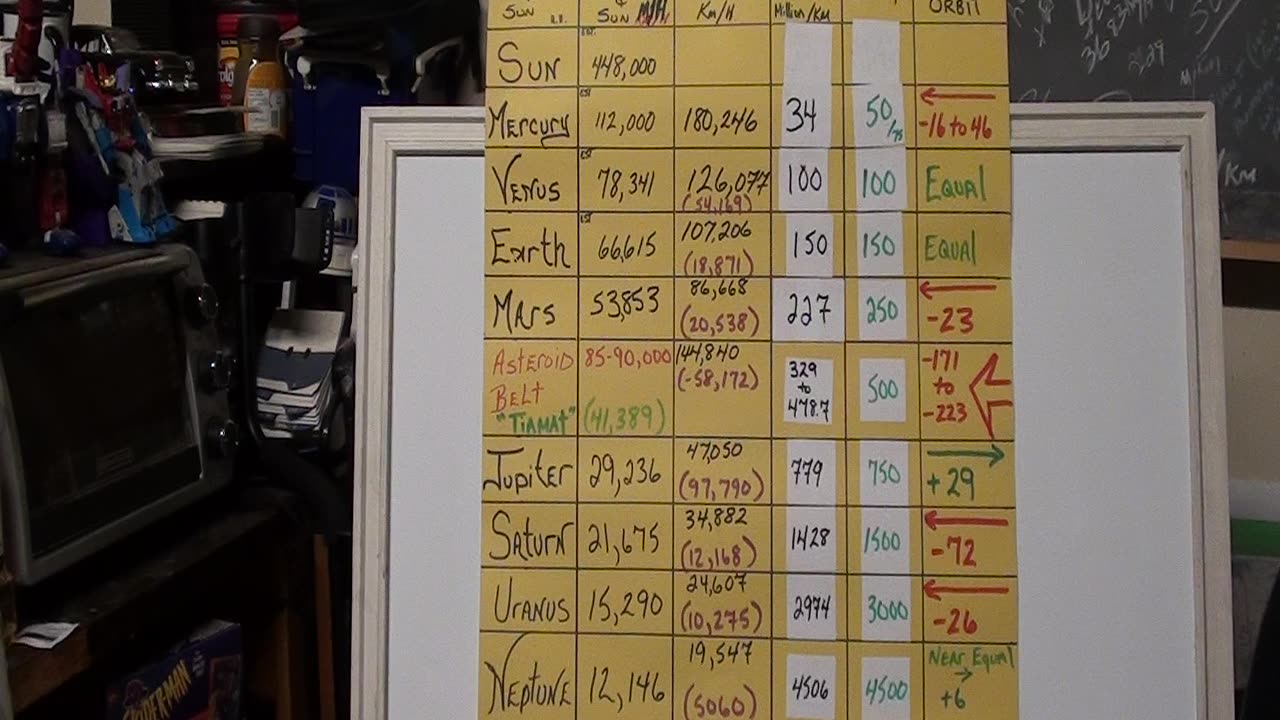 SUN SUN M/H Km/H Million/KM ORBIT
SUN EST. 448,000
MERCURY EST 112,000 180,246 34 50/75 -16 to 46
VENUS EST 78,341 126,077 (54,169) 100 100 EQUAL
EARTH EST 66,615 107,206 (18,871) 150 150 EQUAL
MARS 53,853 86,668 (20,538) 227 250 -23
ASTEROID BELT "TIAMAT" 85-90,000 (41,389) 144,840 (-58,172) 329 to 478.7 500 -171 to -223
JUPITER 29,236 47,050 (97,790) 779 750 +29
SATURN 21,675 34,882 (12,168) 1428 1500 -72
URANUS 15,290 24,607 (10,275) 2974 3000 -26
NEPTUNE 12,146 19,547 (5060) 4506 4500 NEAR EQUAL +6
36
KM
SPIDER-MAN